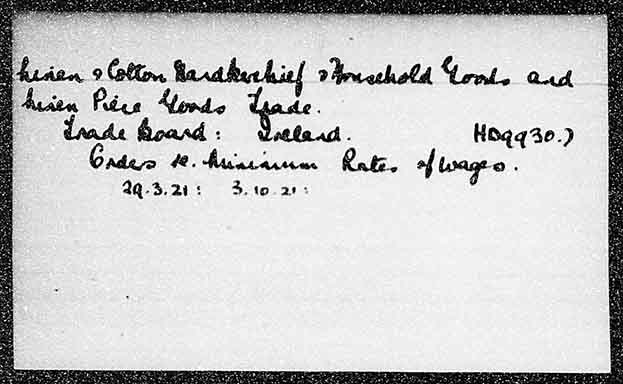 Linen & Cotton Handkerchief & Household Goods and
Linen Piece Goods Trade.
Trade Board: Ireland. HD9930.7
Orders re. Minimum Rates of Wages.
29.3.21: 3.10.21: